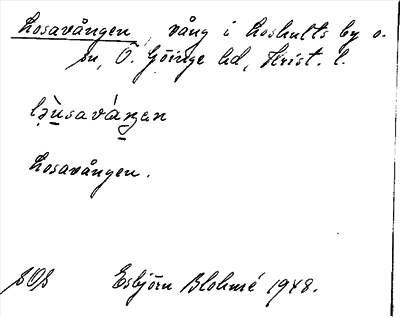 Losavången, vång i Loshults by o.
sn, Ö. Göinge hd, Krist. l.
ljùsaváŋen
Losavången.
SOS Esbjörn Blohmé 1948.